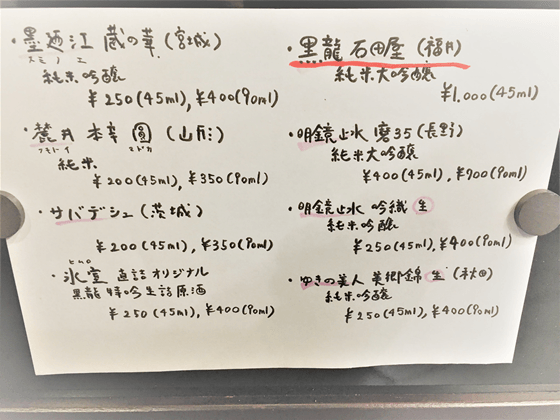 ・墨廼江 蔵の華(宮城)
スミノエ
純米吟醸
¥250(45ml),¥400(90ml)
・麓井 本辛 圓(山形)
フモトイ マドカ
純米
¥200(45ml),¥350(90ml)
・サバデシュ(茨城)
¥200(45ml),¥350(90ml)
ヒムロ
・氷室 直詰オリジナル
黒龍 特吟生詰原酒
¥250(45ml),¥400(90ml)
・黒龍 石田屋(福井)
純米大吟醸
¥1.000(45ml)
・明鏡止水 磨35(長野)
純米大吟醸
¥400(45ml),¥700(90ml)
・明鏡止水 吟織 生
純米吟醸
¥250(45ml),¥400(90ml)
・ゆきの美人 美郷錦 生(秋田)
純米吟醸
¥250(45ml),¥400(90ml)